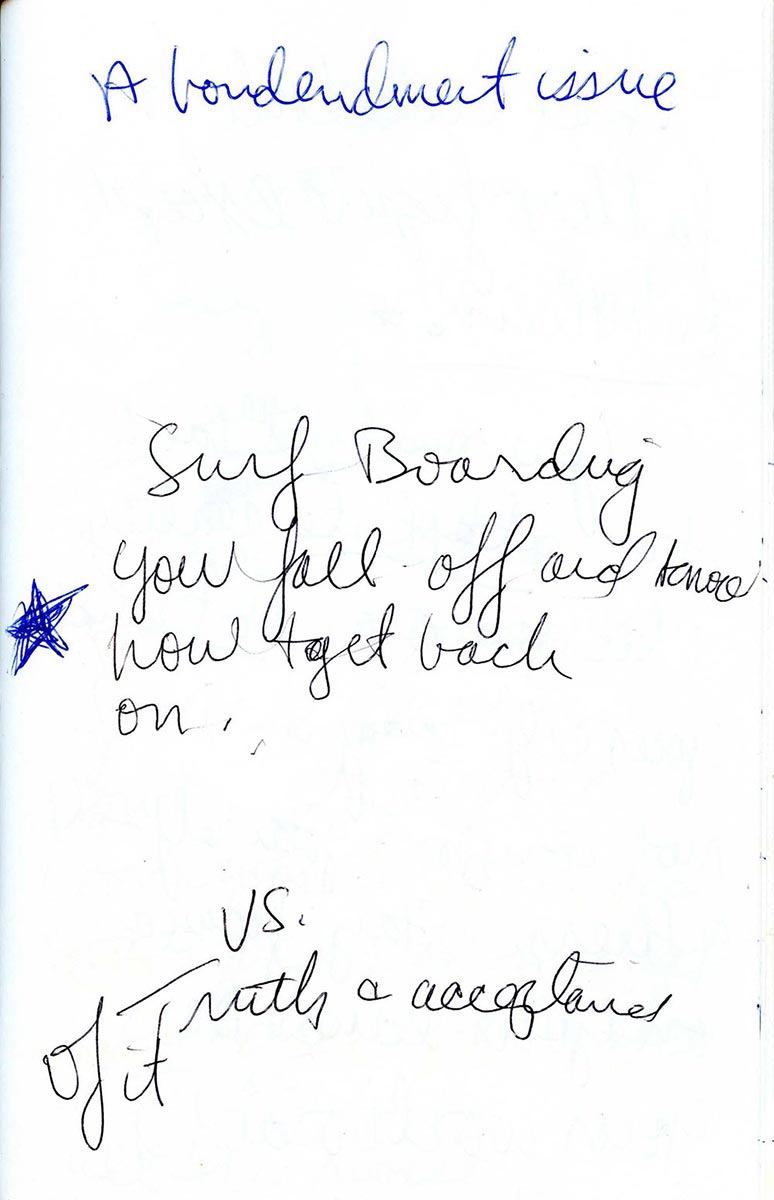 A bondendment issue
Surf Boarding
you fall off and know
how to get back
on.
vs.
Truth & acceptance
of it